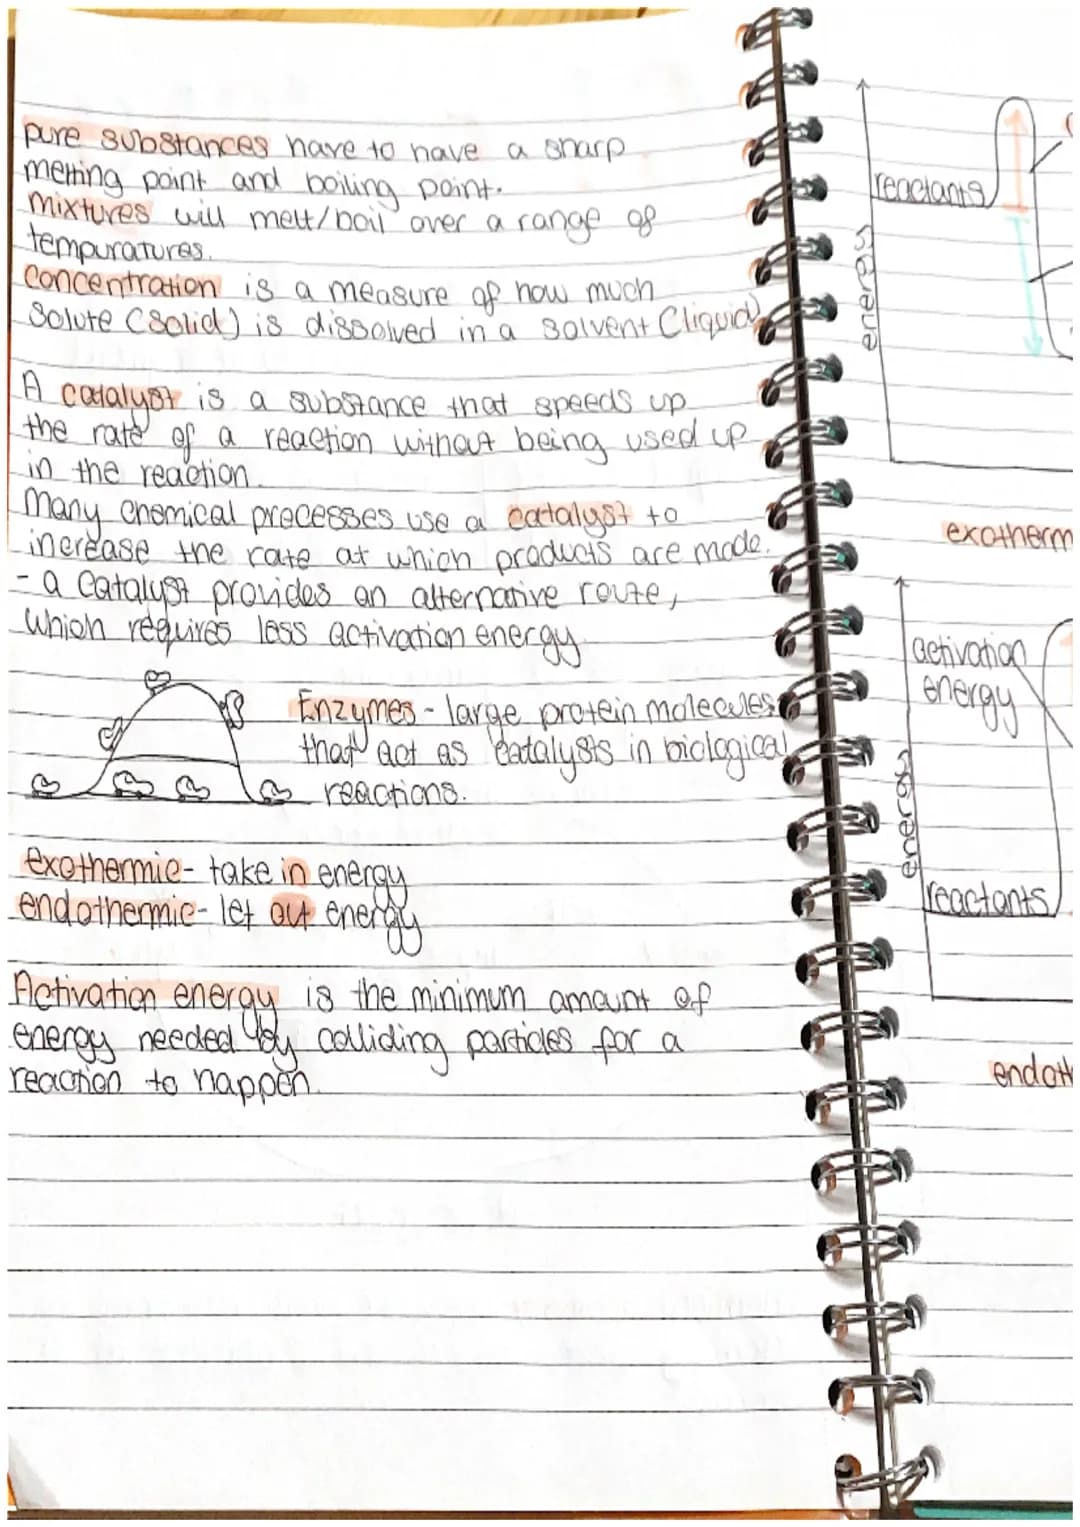 pure substances have to have a sharp
melting point and boiling point.
mixtures will melt/boil over a range of
tempuratures.
concentration is a measure of how much
solute (solid) is dissolved in a solvent (liquid)
A catalyst is a substance that speeds up
the rate of a reaction without being used up
in the reaction.
Many chemical processes use a catalyst to
increase the rate at which products are made.
- a catalyst provides an alternative route,
which requires less activation energy.
Enzymes - large protein molecules
that act as catalysts in biological
reactions.
exothermic - take in energy
endothermic - let out energy
Activation energy is the minimum amount of
energy needed by colliding particles for a
reaction to happen.
reactants
energy
exotherm
activation
energy
energy
reactants
endoth